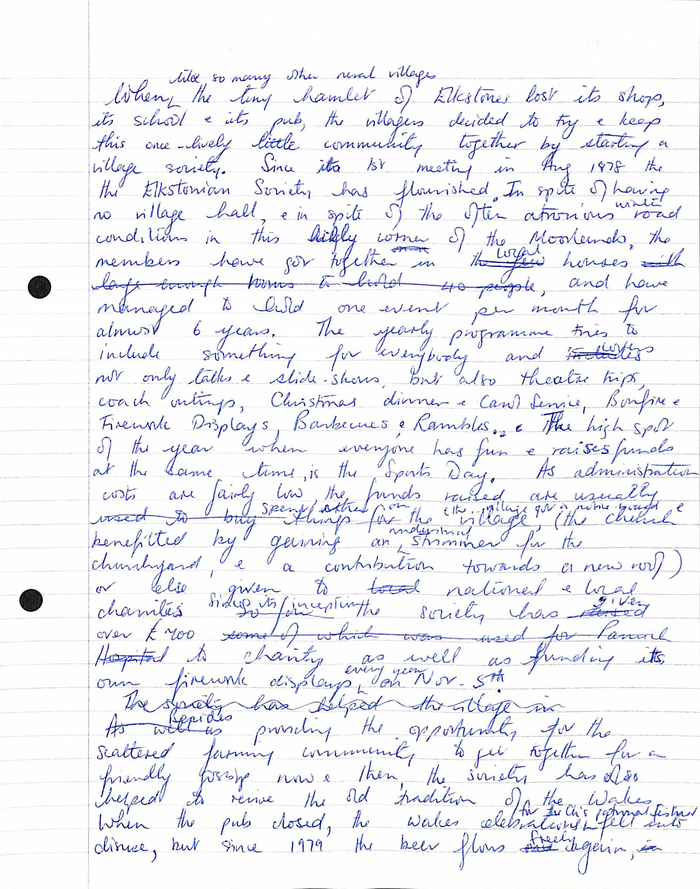 like so many other rural villages
When, the tiny hamlet of Elkstones lost its shop,
its school & its pub, the villagers decided to try & keep
this once-lively little community together by starting a
village society. Since its 1st meeting in Aug 1978 the
the Elkstonian Society has flourished. In spite of having
no village hall, & in spite of the often atrocious winter road
conditions in this corner of the Moorlands, the
members have got together in the few local houses with
large enough rooms to hold 40 people, and have
managed to hold one event per month for
almost 6 years. The yearly programme tries to
include something for everybody and includes covers
not only talks & slide-shows, but also theatre trips,
coach outings, Christmas dinner & Carol Service, Bonfire &
Firework Displays, Barbecues, & Rambles. & The high spot
of the year when everyone has fun & raises funds
at the same time, is the Sports Day. As administration
costs are fairly low the funds raised are usually
spent either on (the village got a notice board &
used to buy things for the village, (the church
industrial
benefitted by gaining an strimmer for the
churchyard, & a contribution towards a new roof)
or else given to local national & local
charities so far since its inception the society has given
over £700 some of which was used for
Hospital to charity as well as funding its
own firework displays, every year on Nov. 5th
The society has helped the village in
As well as besides providing the opportunity for the
scattered farming community to get together for a
friendly gossip now & then, the society has also
helped to revive the old tradition of the Wakes
When the pub closed, the wakes celebrations for the Ch's patronal festival fell into
disuse, but since 1979 the beer flows freely again, in